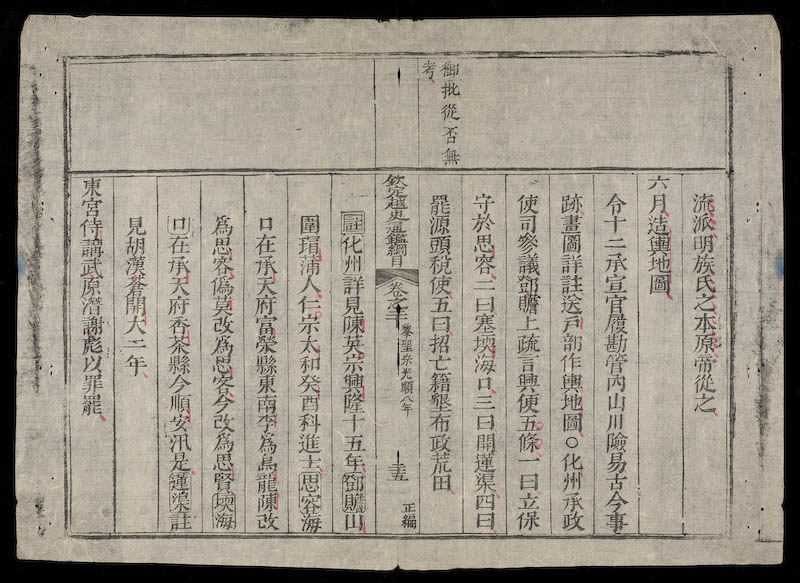 流派明族氏之本原帝從之
六月造輿地圖
令十二承宣官履勘管內山川險易古今事
跡畫圖詳註送戶部作輿地圖○化州承政
使司參議鄧贍上疏言興便五條一曰立保
守於思容二曰塞壊海口三曰開蓮渠四曰
罷源頭稅使五曰招亡籍墾布政荒田
御批從否無
考
欽定越史通鑑綱目 卷之二 黎聖宗光順八年 三五 正編
註化州詳見陳英宗興隆十五年鄧贍山
圍瑁蒲人仁宗太和癸酉科進士思容海
口在承天府富榮縣東南李為烏龍陳改
為思容偽莫改為思客今改為思賢壊海
口在承天府香茶縣今順安汛是蓮渠註
見胡漢蒼開大二年
東宮侍講武原潛謝彪以罪罷